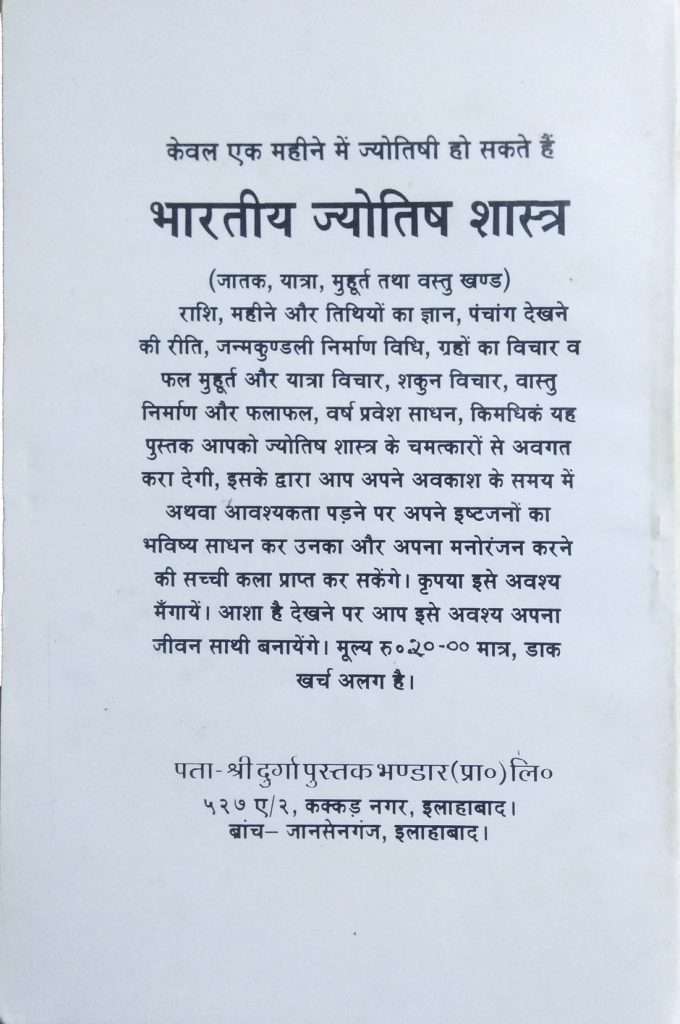 केवल एक महीने में ज्योतिषी हो सकते हैं
भारतीय ज्योतिष शास्त्र
(जातक, यात्रा, मुहूर्त तथा वस्तु खण्ड)
राशि, महीने और तिथियों का ज्ञान, पंचांग देखने
की रीति, जन्मकुण्डली निर्माण विधि, ग्रहों का विचार व
फल मुहूर्त और यात्रा विचार, शकुन विचार, वास्तु
निर्माण और फलाफल, वर्ष प्रवेश साधन, किमधिकं यह
पुस्तक आपको ज्योतिष शास्त्र के चमत्कारों से अवगत
करा देगी, इसके द्वारा आप अपने अवकाश के समय में
अथवा आवश्यकता पड़ने पर अपने इष्टजनों का
भविष्य साधन कर उनका और अपना मनोरंजन करने
की सच्ची कला प्राप्त कर सकेंगे। कृपया इसे अवश्य
मँगायें। आशा है देखने पर आप इसे अवश्य अपना
जीवन साथी बनायेंगे। मूल्य रु०२०-०० मात्र, डाक
खर्च अलग है।
पता-श्री दुर्गा पुस्तक भण्डार(प्रा०)लि०
५२७ ए/२, कक्कड़ नगर, इलाहाबाद।
ब्रांच– जानसेनगंज, इलाहाबाद।